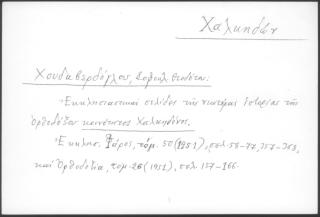 Χαλκηδών
Χουδαβερδόγλους, Σοφοκλ Θεοδότου:
Ἐκκλησιαστικαὶ σελίδες τῆς νεωτέρας ἱστορίας τῆς
Ὀρθοδόξου κοινότητος Χαλκηδόνος.
Ἐκκλησ. Φάρος, τόμ. 50 (1951), σελ. 58-77, 357-368,
καὶ Ὀρθοδοξία, τομ. 26 (1951), σελ 157-166.